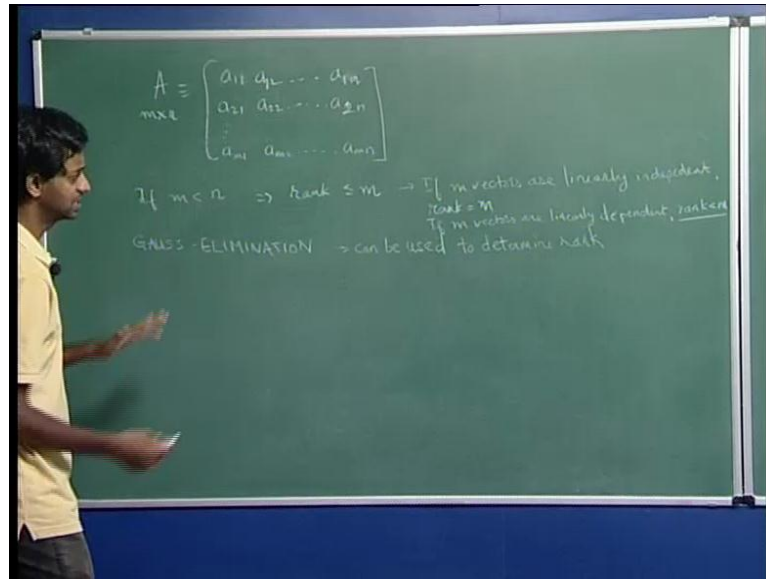 A ≡ [ a11 a12 .... a1n
m×n a21 a22 ...... a2n
⋮
am1 am2 ..... amn ]
If m < n ⇒ rank ≤ m → If m vectors are linearly independent,
rank = m
If m vectors are linearly dependent, rank<m
GAUSS-ELIMINATION → can be used to determine rank